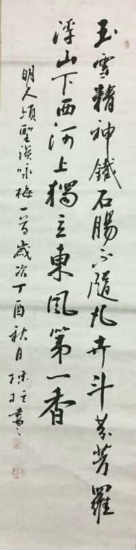 玉雪精神鐵石腸不隨凡卉斗芬芳羅
浮山下西河上獨立東風第一香
明人項聖謨詠梅一首歲次丁酉秋月